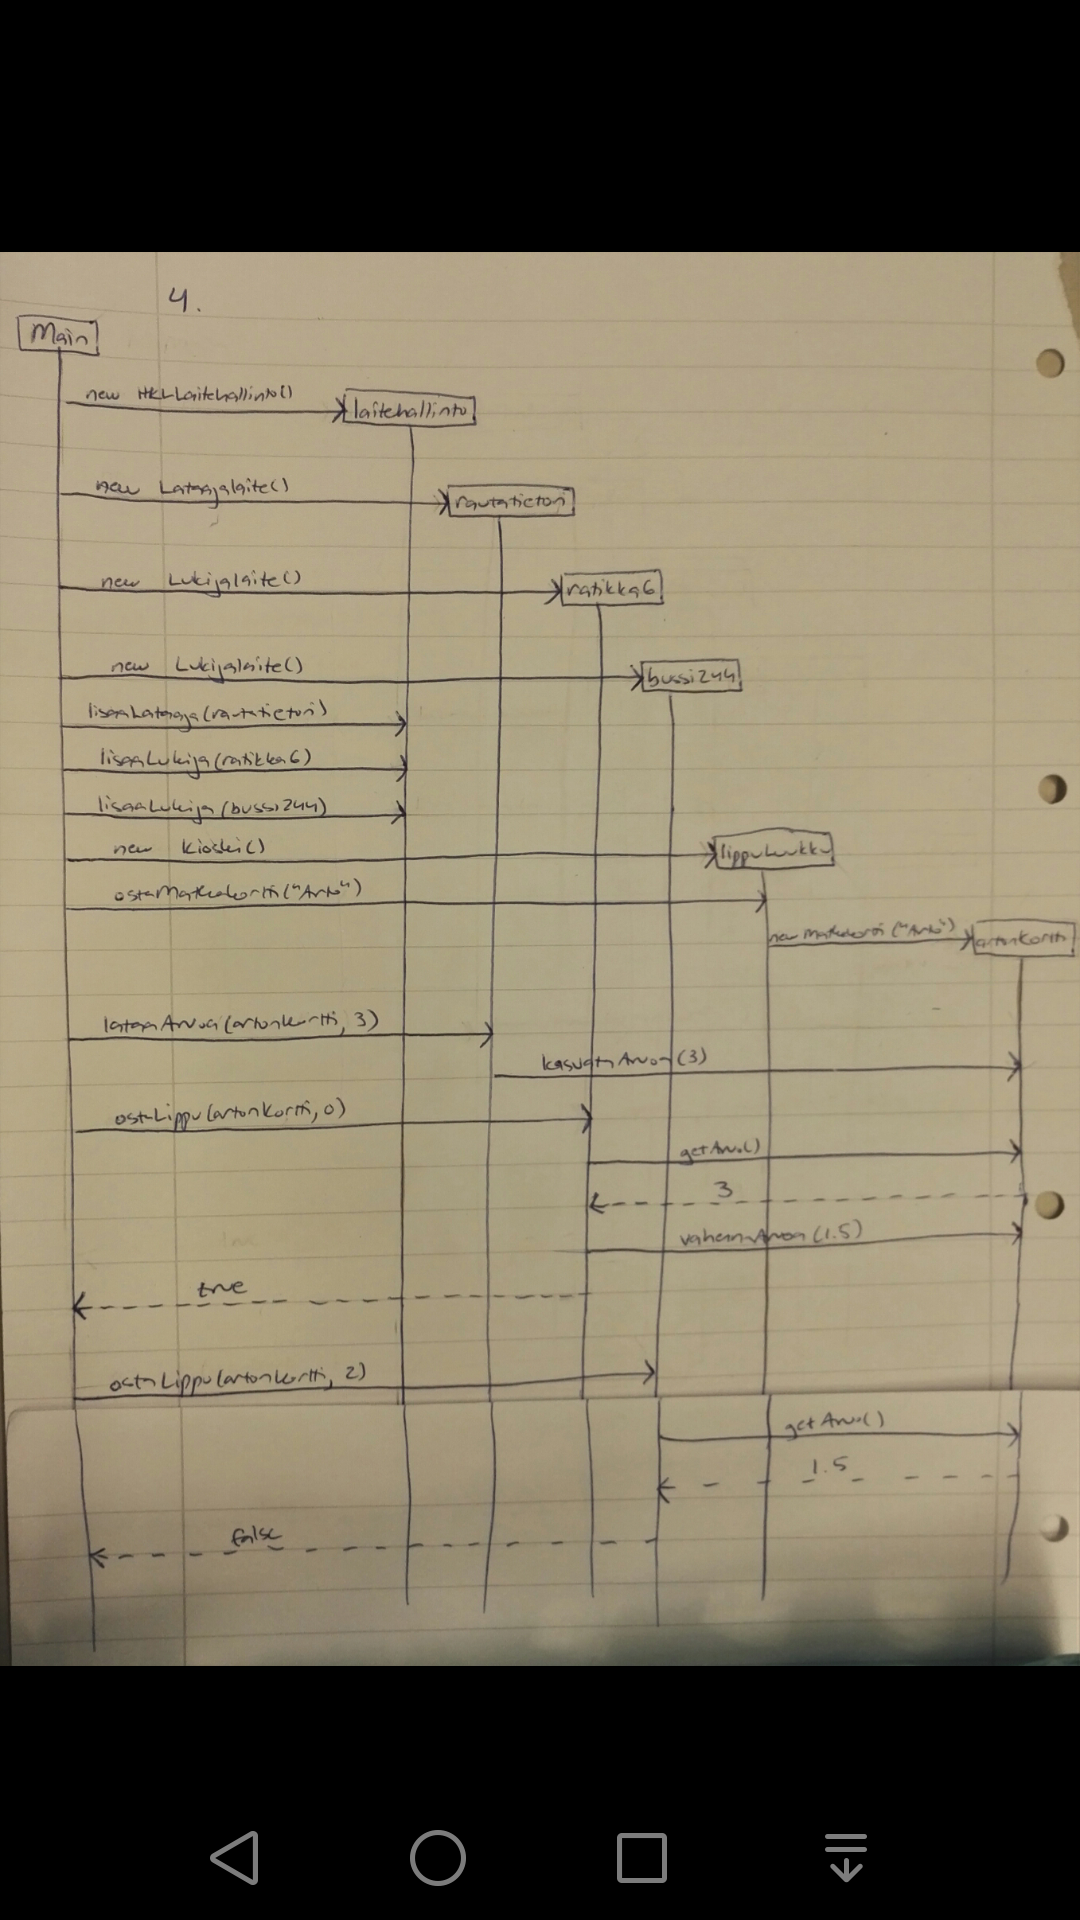 4.
Main
new HKLLaitehallinto()
laitehallinto
new Lataajalaite()
rautatietori
new Lukijalaite()
ratikka6
new Lukijalaite()
bussi244
lisaaLataaja(rautatietori)
lisaaLukija(ratikka6)
lisaaLukija(bussi244)
new Kioski()
lippuLuukku
ostaMatkakortti("Arto")
new Matkakortti("Arto")
artonKortti
lataaArvoa(artonKortti, 3)
kasvataArvoa(3)
ostaLippu(artonKortti, 0)
getArvo()
3
vahennaArvoa(1.5)
true
ostaLippu(artonKortti, 2)
getArvo()
1.5
false